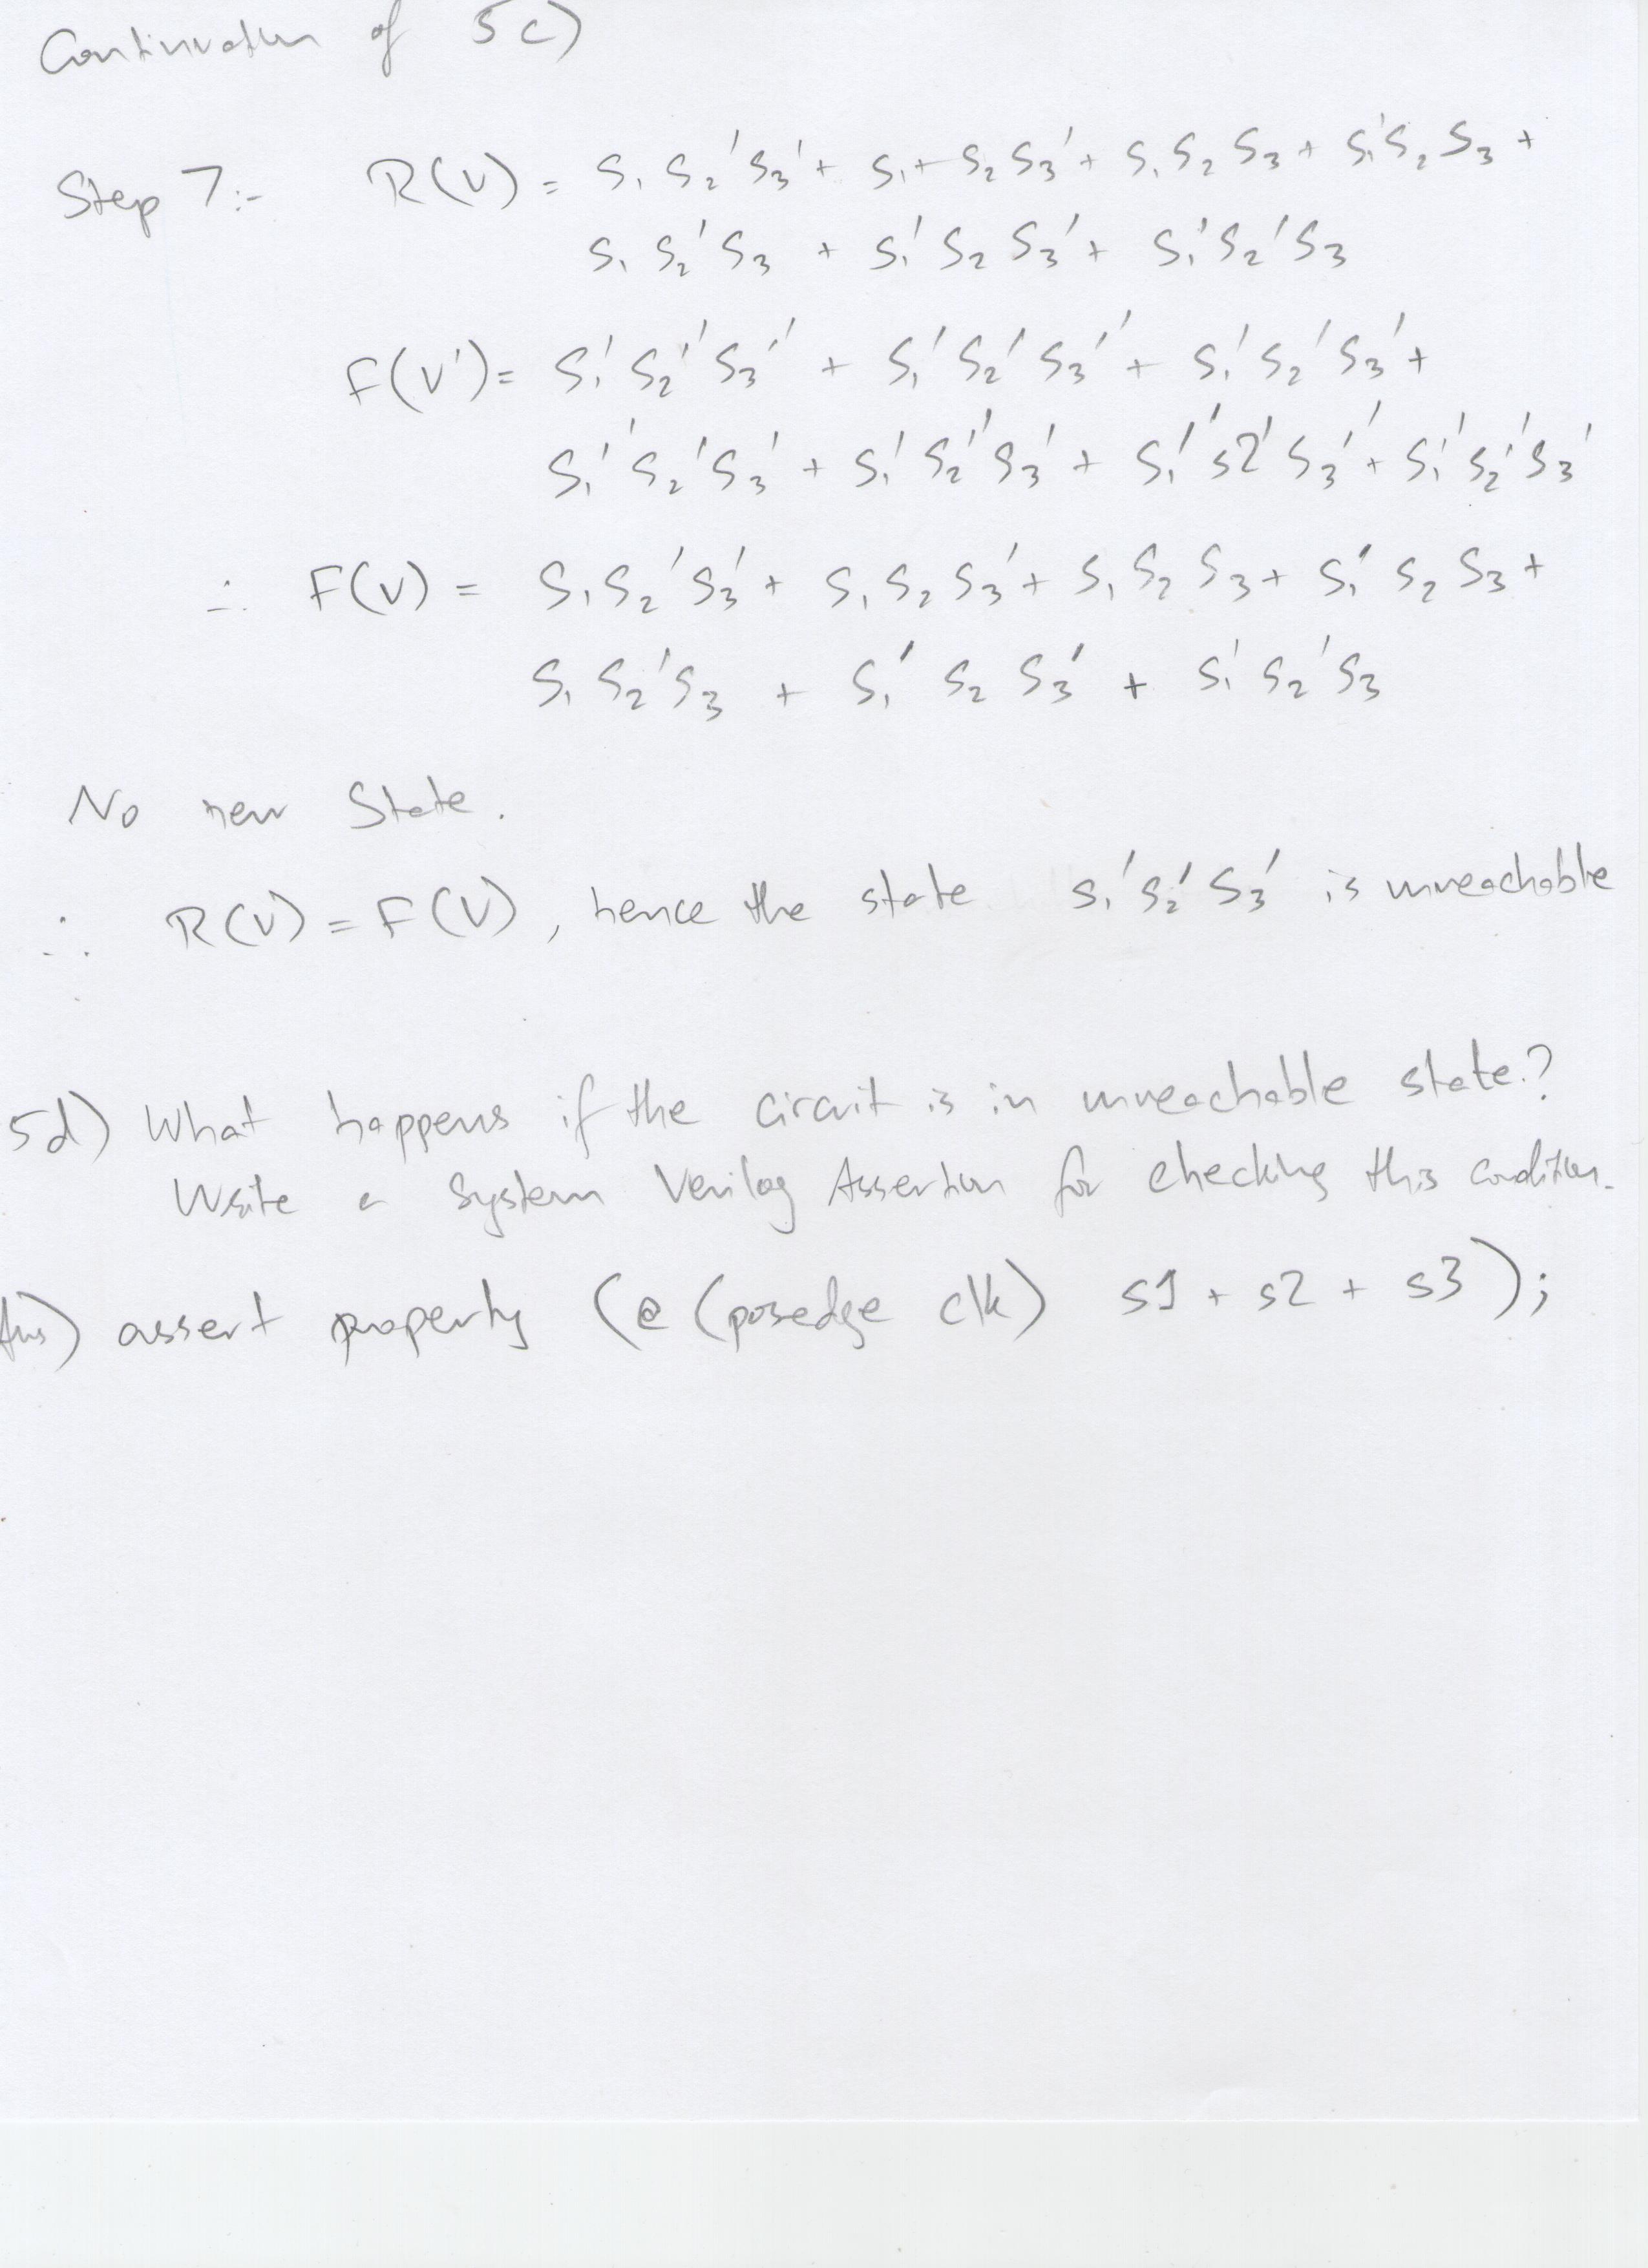 Continuation of 5c)
Step 7:- R(V) = S₁ S₂' S₃' + S₁ + S₂ S₃' + S₁ S₂ S₃ + S₁' S₂ S₃ +
S₁ S₂' S₃ + S₁' S₂ S₃' + S₁' S₂' S₃
F(V') = S₁' S₂'' S₃'' + S₁' S₂' S₃'' + S₁' S₂' S₃' +
S₁'' S₂' S₃' + S₁' S₂'' S₃' + S₁'' s2' S₃'' + S₁'' S₂'' S₃'
∴ F(V) = S₁ S₂' S₃' + S₁ S₂ S₃' + S₁ S₂ S₃ + S₁' S₂ S₃ +
S₁ S₂' S₃ + S₁' S₂ S₃' + S₁' S₂' S₃
No new State.
∴ R(V) = F(V), hence the state S₁' S₂' S₃' is unreachable
5d) What happens if the circuit is in unreachable state.?
Write a System Verilog Assertion for checking this condition.
Ans) assert property (@ (posedge clk) s1 + s2 + s3);